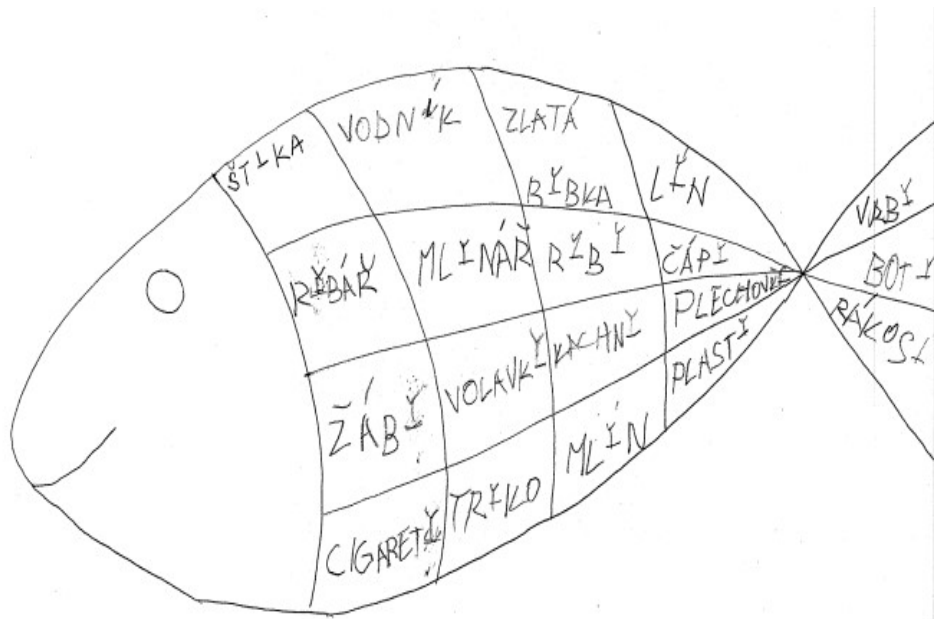 ŠTIKA
VODNÍK
ZLATÁ
RYBKA
LÍN
RYBÁŘ
MLYNÁŘ
RYBY
ČÁPI
PLECHOVKY
ŽÁBY
VOLAVKY
KACHNY
PLASTY
CIGARETY
TRIKO
MLÝN
VRBY
BOTY
RÁKOSÍ